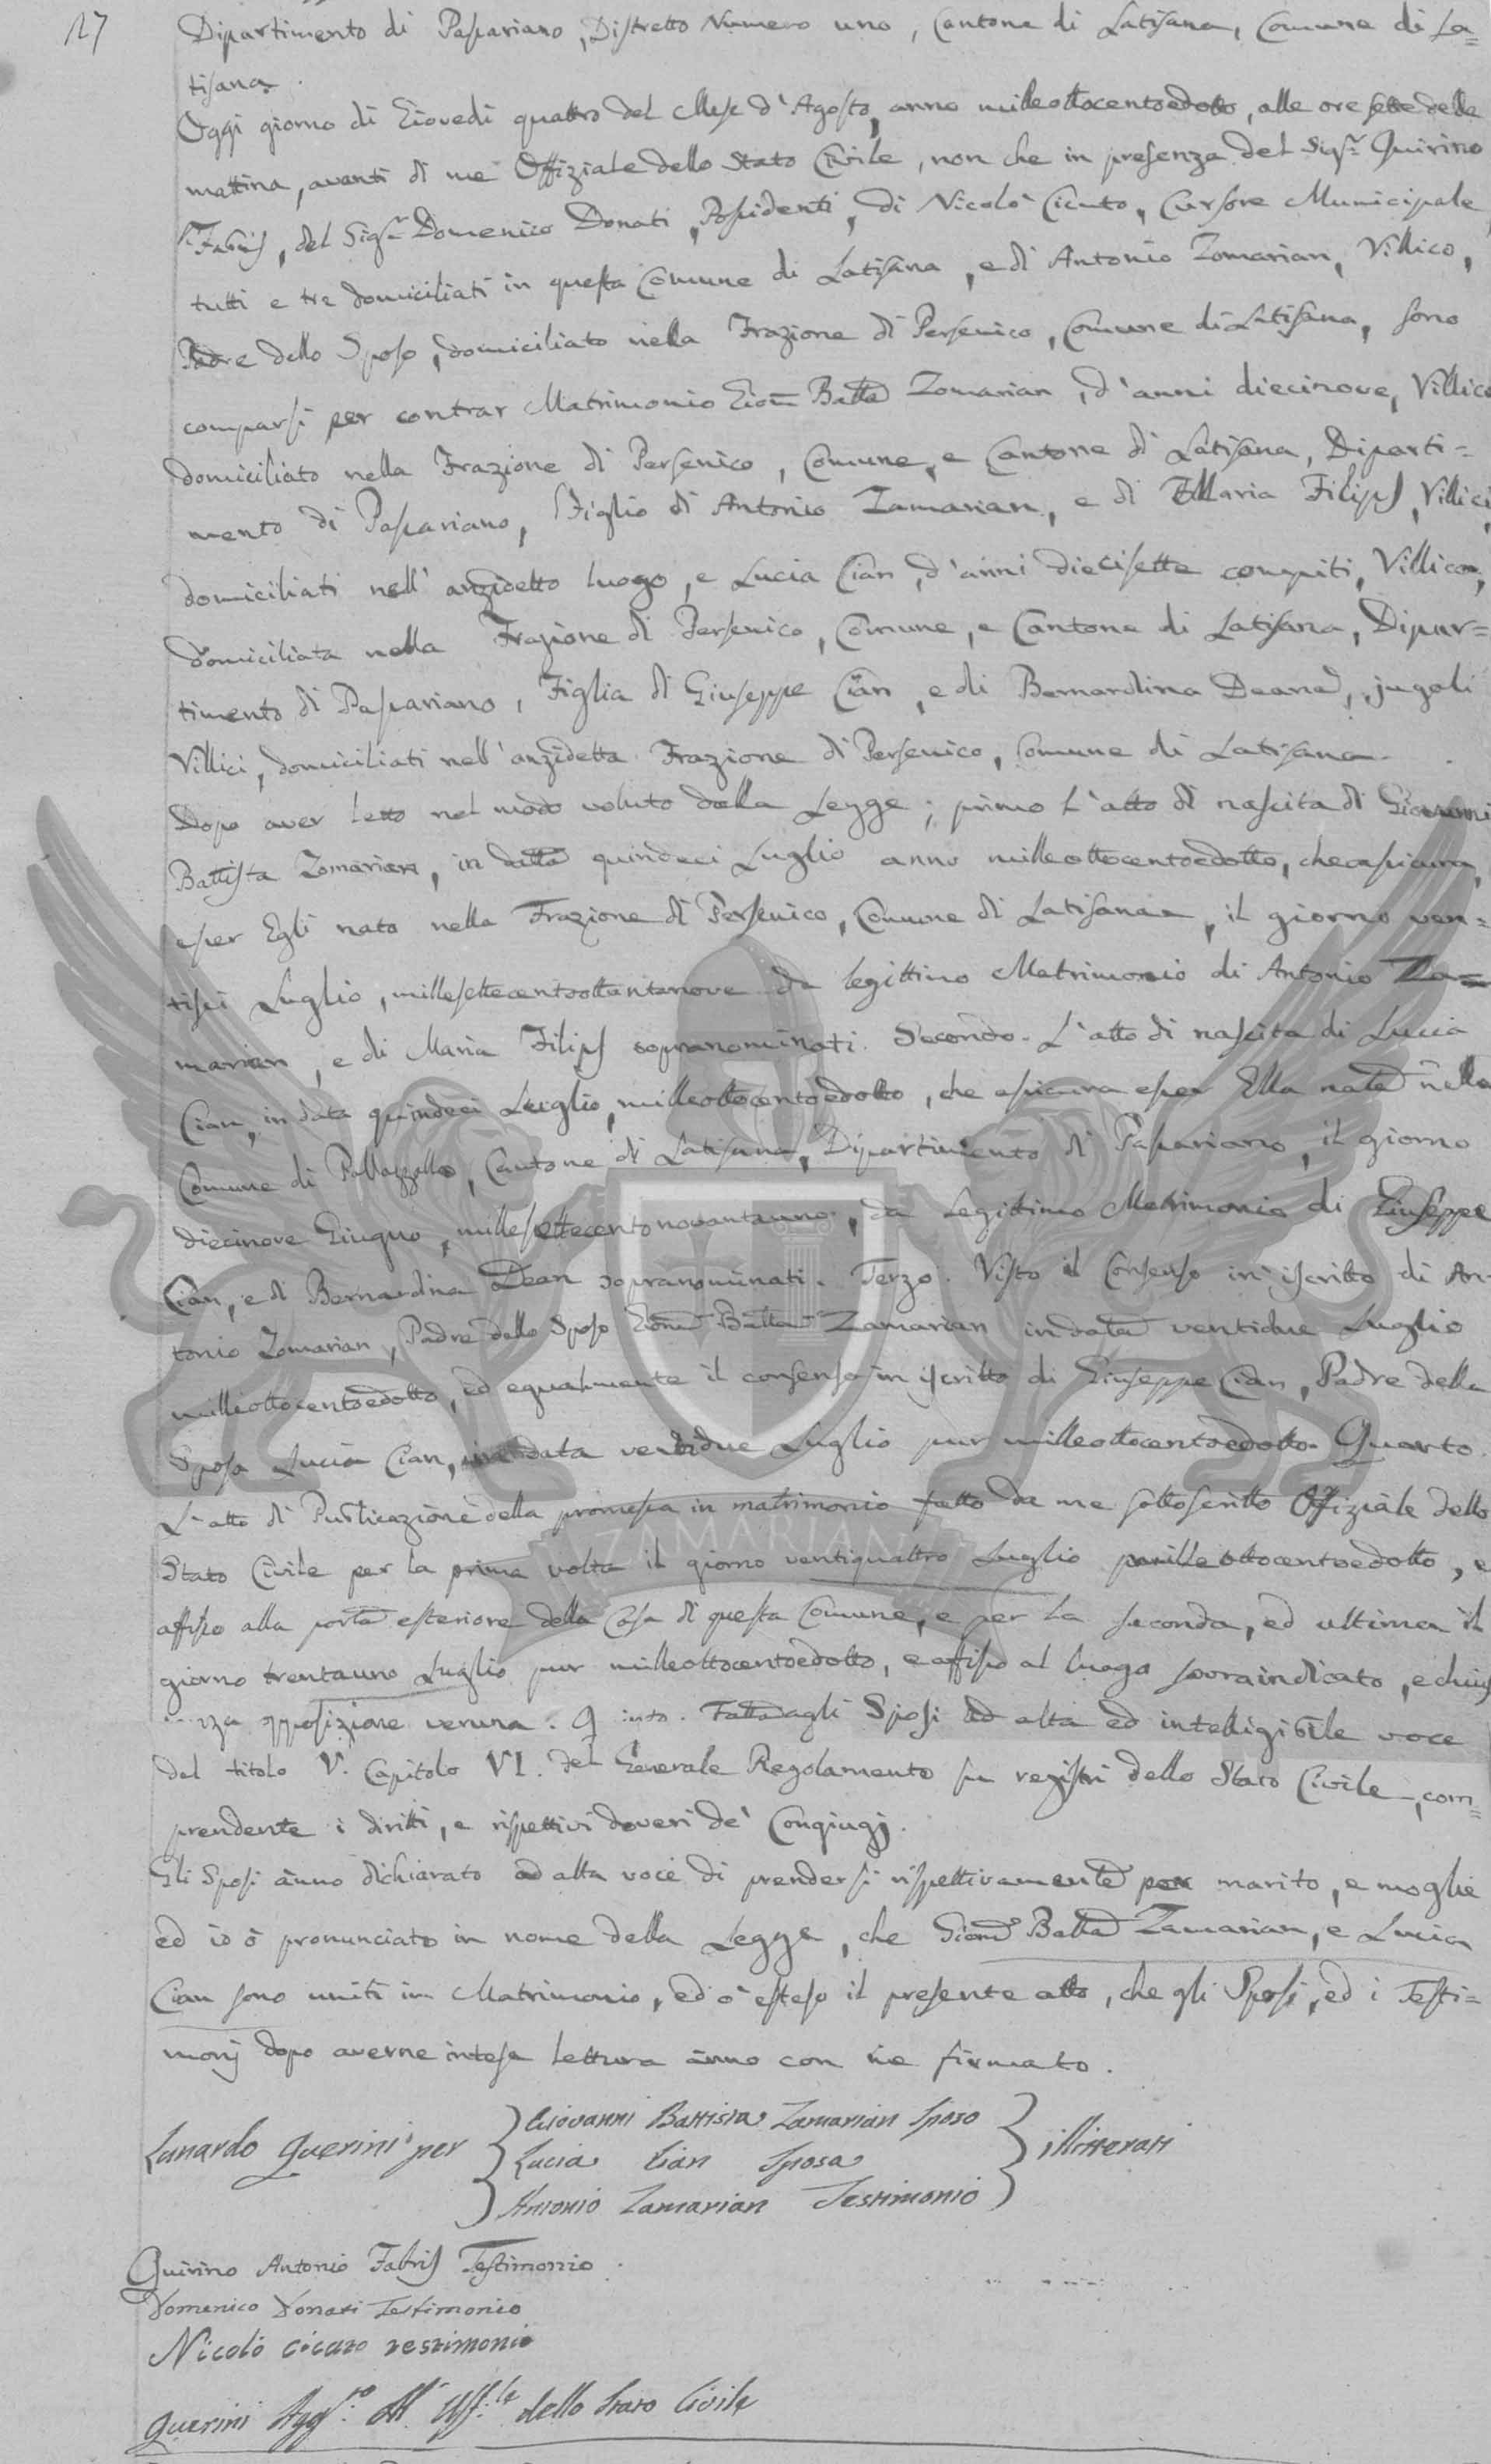 17
Dipartimento di Passariano, Distretto Numero uno, Cantone di Latisana, Comune di La=
tisana.
Oggi giorno di Giovedì quattro del Mese d'Agosto, anno milleottocentoedotto, alle ore sette della
mattina, avanti di me Offiziale dello Stato Civile, non che in presenza del Sigr. Quirino
Fabris, del Sigr. Domenico Donati, Possidenti, di Nicolò Cicuto, Cursore Municipale
tutti e tre domiciliati in questa Comune di Latisana, e di Antonio Zamarian, Villico,
Padre dello Sposo, domiciliato nella Frazione di Persenico, Comune di Latisana, sono
comparsi per contrar Matrimonio Giom Batta Zamarian, d'anni diecinove, Villico
domiciliato nella Frazione di Persenico, Comune, e Cantone di Latisana, Diparti=
mento di Passariano, Figlio di Antonio Zamarian, e di Maria Filips, Villici,
domiciliati nell'anzidetto luogo, e Lucia Cian, d'anni diecisette compiti, Villica,
domiciliata nella Frazione di Persenico, Comune, e Cantone di Latisana, Dipar=
timento di Passariano, Figlia di Giuseppe Cian, e di Bernardina Deana, jugali
Villici, domiciliati nell'anzidetta Frazione di Persenico, Comune di Latisana.
Dopo aver letto nel modo voluto dalla Legge; primo L'atto di nascita di Giovanni
Battista Zamarian, in data quindeci Luglio anno milleottocentoedotto, che assicura,
esser Egli nato nella Frazione di Persenico, Comune di Latisana, il giorno ven=
tisei Luglio, millesettecentoottantanove da legittimo Matrimonio di Antonio Za=
marian, e di Maria Filips sopranominati. Secondo. L'atto di nascita di Lucia
Cian, in data quindeci Luglio, milleottocentoedotto, che assicura esser Ella nata nella
Comune di Pallazzolo, Cantone di Latisana, Dipartimento di Passariano, il giorno
diecinove Giugno, millesettecentonovantauno, da Legittimo Matrimonio di Giuseppe
Cian, e di Bernardina Dean sopranominati. Terzo. Visto il Consenso in iscritto di An-
tonio Zamarian, Padre dello Sposo Giom Batta Zamarian in data ventidue Luglio
milleottocentoedotto, ed egualmente il consenso in iscritto di Giuseppe Cian, Padre della
Sposa Lucia Cian, in data ventidue Luglio pur milleottocentoedotto. Quarto.
L'atto di Publicazione della promessa in matrimonio fatto da me sottoscritto Offiziale dello
Stato Civile per la prima volta il giorno ventiquattro Luglio milleottocentoedotto, e
affisso alla porta esteriore della Casa di questa Comune, e per la seconda, ed ultima il
giorno trentauno Luglio pur milleottocentoedotto, e affisso al luogo sovraindicato, e
opposizione veruna. Fatta agli Sposi ad alta ed intelligibile voce
del titolo V. Capitolo VI. del Generale Regolamento su registri dello Stato Civile, com=
prendente i diritti, e rispettivi doveri de' Congiugj.
Gli Sposi ànno dichiarato ad alta voce di prendersi rispettivamente per marito, e moglie
ed io ò pronunciato in nome della Legge, che Giom Batta Zamarian, e Lucia
Cian sono uniti in Matrimonio, ed ò esteso il presente atto, che gli Sposi, ed i Testi=
monj dopo averne intesa lettura ànno con me firmato.
Giovanni Battista Zamarian Sposo
Lunardo Querini per Lucia Cian Sposa illitterati
Antonio Zamarian Testimonio
Quirino Antonio Fabris Testimonio.
Domenico Donati Testimonio
Nicolò Cicuto testimonio
Querini Aggto. All' Uff.le dello Stato Civile
ZAMARIAN